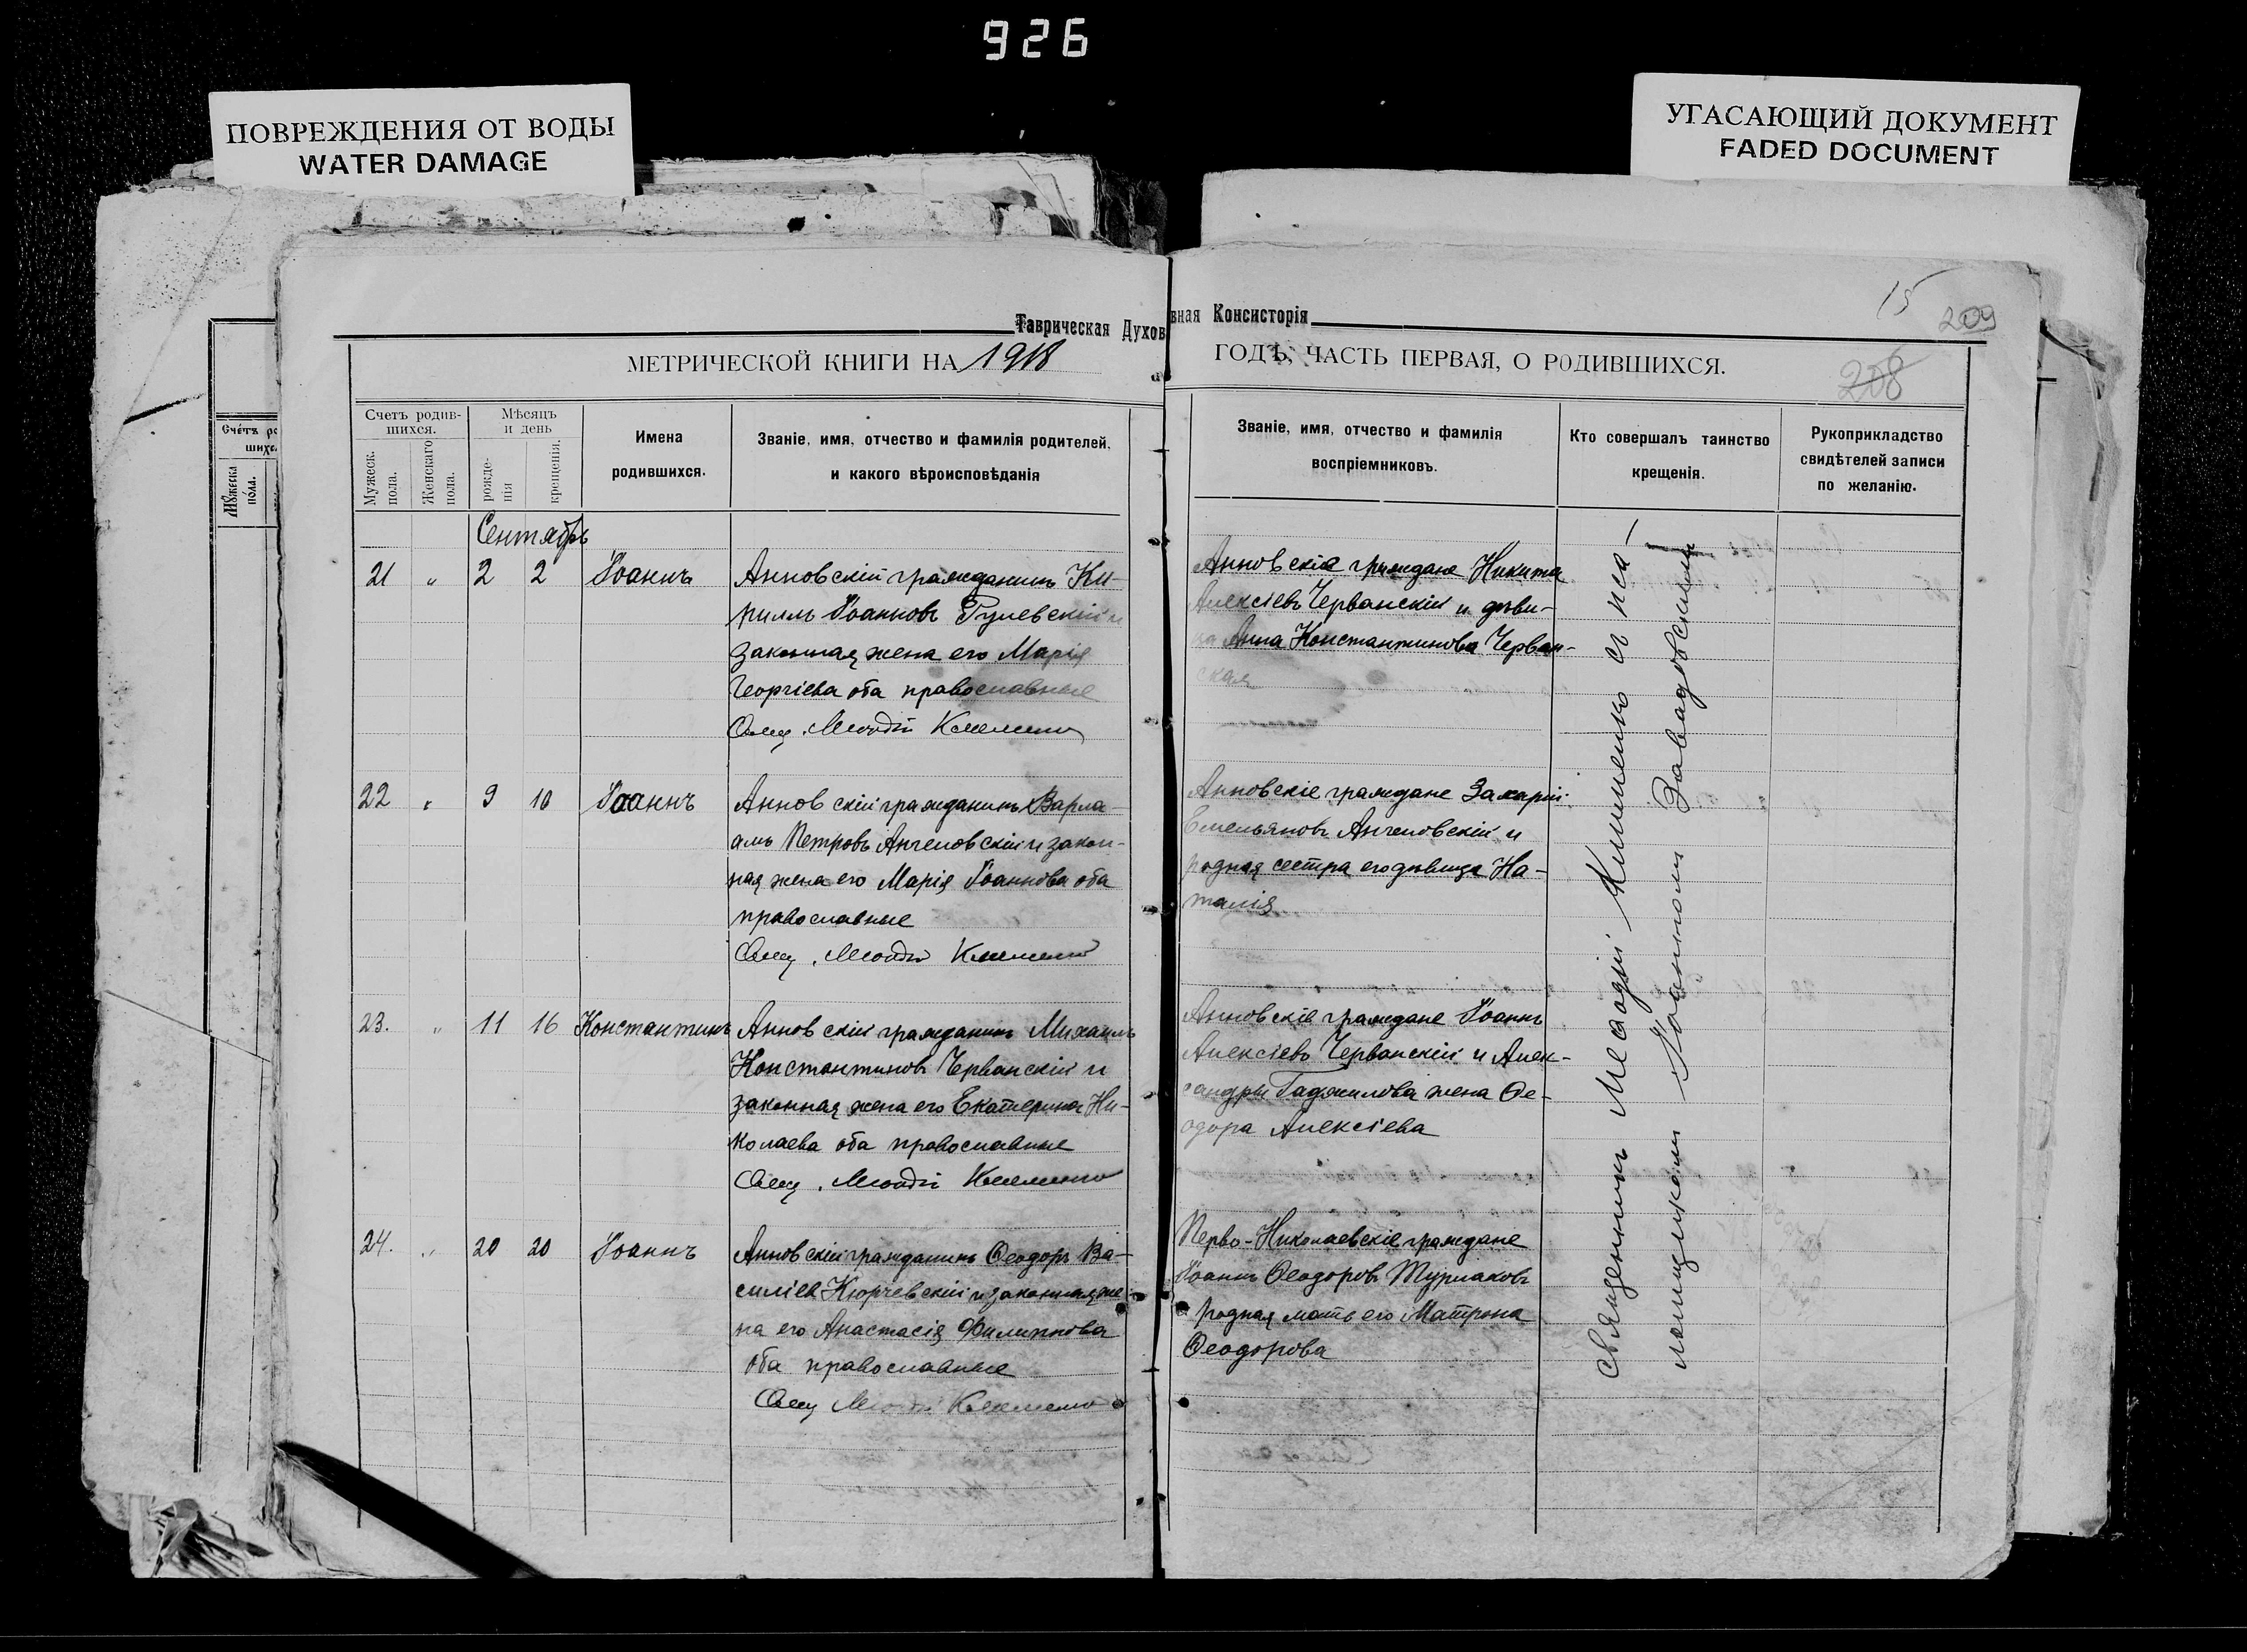 926
ПОВРЕЖДЕНИЯ ОТ ВОДЫ
WATER DAMAGE
УГАСАЮЩИЙ ДОКУМЕНТ
FADED DOCUMENT
15
209
208
Таврическая Духовная Консисторія
МЕТРИЧЕСКОЙ КНИГИ НА 1918 ГОДЪ, ЧАСТЬ ПЕРВАЯ, О РОДИВШИХСЯ.
Счетъ родив-
шихся.
Мужеск. пола.
Женскаго пола.
Мѣсяцъ
и день
рожде-
нія
крещенія.
Имена
родившихся.
Званіе, имя, отчество и фамилія родителей,
и какого вѣроисповѣданія
Званіе, имя, отчество и фамилія
воспріемниковъ.
Кто совершалъ таинство
крещенія.
Рукоприкладство
свидѣтелей записи
по желанію.
Сентябрь
21 " 2 2 Іоаннъ
Анновскій гражданинъ Ки-
риллъ Іоанновъ Гулевскій и
законная жена его Марія
Георгіева оба православные
Свящ. Меѳодій Клименко
Анновскіе граждане Никита
Алексіевъ Черванскій и дѣви-
ца Анна Константинова Черван-
ская
22 " 9 10 Іоаннъ
Анновскій гражданинъ Варла-
амъ Петровъ Ангеловскій и закон-
ная жена его Марія Іоаннова оба
православные
Свящ. Меѳодій Клименко
Анновскіе граждане Захарій
Емельяновъ Ангеловскій и
родная сестра его дѣвица На-
талія
23. " 11 16 Константинъ
Анновскій гражданинъ Михаилъ
Константиновъ Черванскій и
законная жена его Екатерина Ни-
колаева оба православные
Свящ. Меѳодій Клименко
Анновскіе граждане Іоаннъ
Алексіевъ Черванскій и Алек-
сандра Гаджилова жена Ѳе-
одора Алексіева
24. " 20 20 Іоаннъ
Анновскій гражданинъ Ѳеодоръ Ва-
силіевъ Кюрчевскій и законная же-
на его Анастасія Филиппова
оба православные
Свящ. Меѳодій Клименко
Перво-Николаевскіе граждане
Іоаннъ Ѳеодоровъ Турлаковъ
и родная мать его Матрона
Ѳеодорова
Священникъ Меѳодій Клименко съ пса-
ломщикомъ Іоанномъ Завадовскимъ
Счётъ ро
шихс
Мужеска
пола.